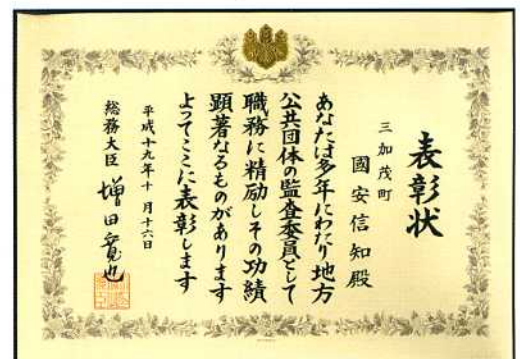 表彰状
三加茂町
國安信知殿
あなたは多年にわたり地方
公共団体の監査委員として
職務に精励しその功績
顕著なるものがあります
よってここに表彰します
平成十九年十月十六日
総務大臣 増田寛也